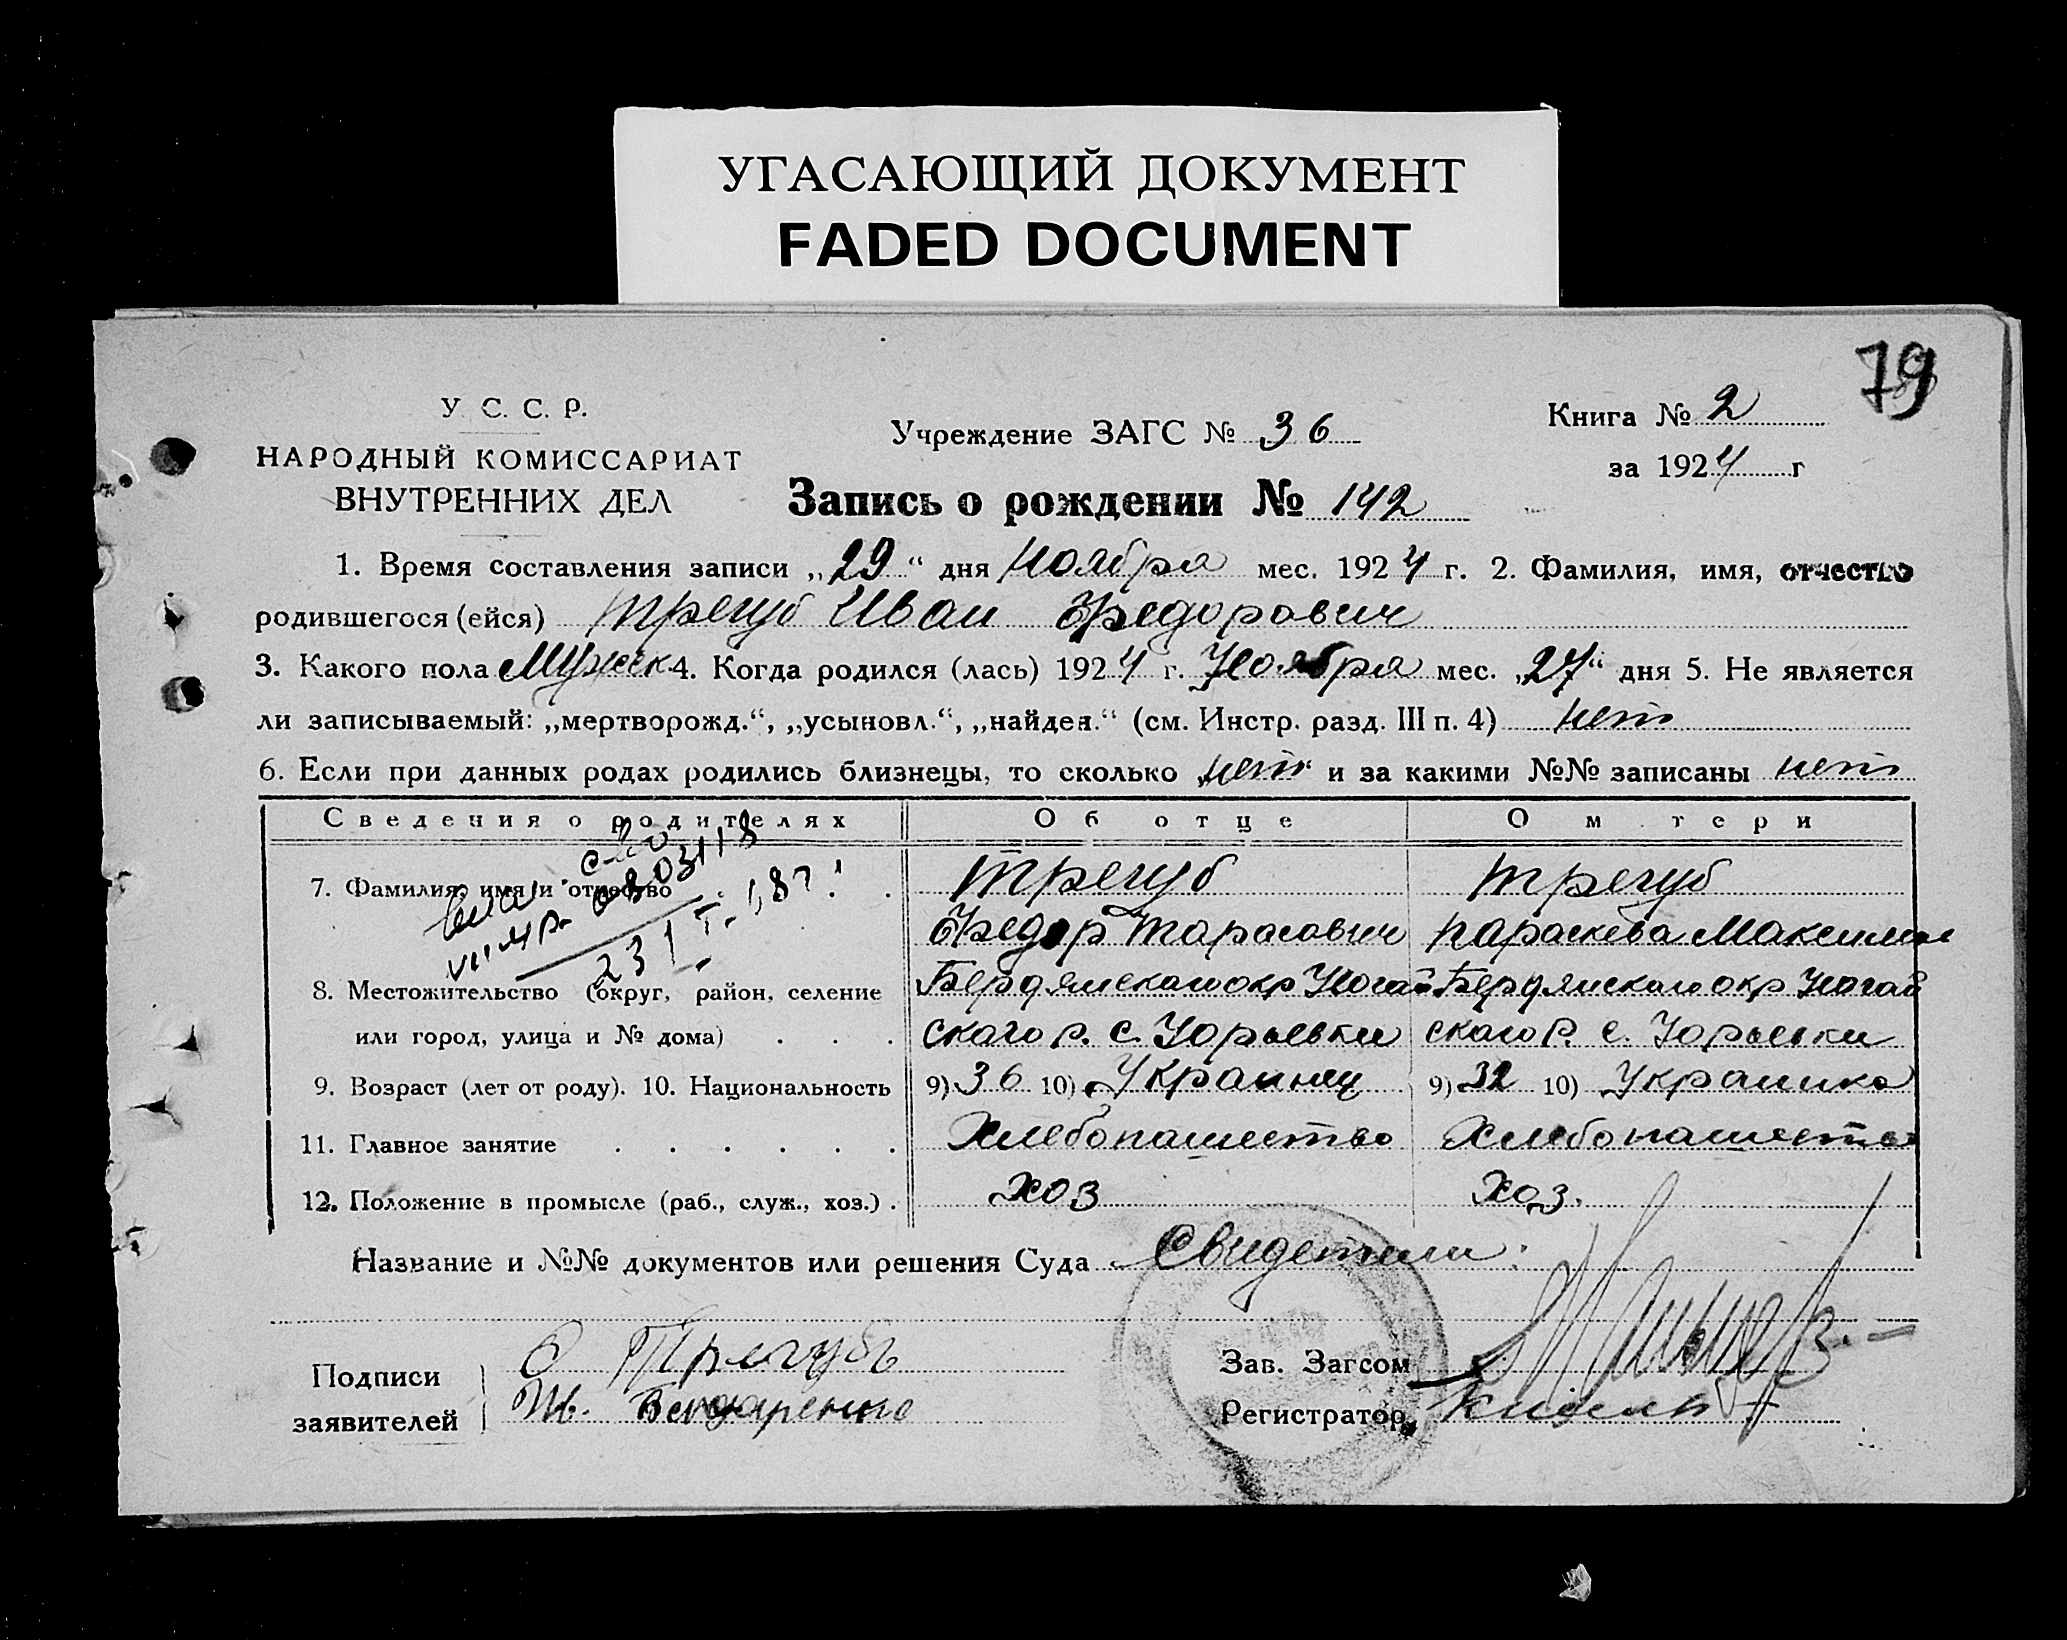 УГАСАЮЩИЙ ДОКУМЕНТ
FADED DOCUMENT
79
У. С. С. Р.
НАРОДНЫЙ КОМИССАРИАТ
ВНУТРЕННИХ ДЕЛ
Учреждение ЗАГС № 36
Книга № 2
за 1924 г
Запись о рождении № 142
1. Время составления записи „29“ дня Ноября мес. 1924 г. 2. Фамилия, имя, отчество
родившегося (ейся) Трегуб Иван Федорович
3. Какого пола Мужск 4. Когда родился (лась) 1924 г. Ноября мес. „27“ дня 5. Не является
ли записываемый: „мертворожд.“, „усыновл.“, „найден.“ (см. Инстр. разд. III п. 4) нет
6. Если при данных родах родились близнецы, то сколько нет и за какими №№ записаны нет
Сведения о родителях Об отце О м тери
7. Фамилия, имя и отчество Трегуб Трегуб
Федор Тарасович Параскева Максимов
8. Местожительство (округ, район, селение Бердянского окр Ногай Бердянского окр Ногай
или город, улица и № дома) ского р. с. Юрьевки ского р. с. Юрьевки
9. Возраст (лет от роду). 10. Национальность 9) 36 10) Украинец 9) 32 10) Украинка
11. Главное занятие Хлебопашество Хлебопашество
12. Положение в промысле (раб., служ., хоз.) хоз хоз.
Название и №№ документов или решения Суда Свидетели:
Подписи
заявителей
О Трегубъ
Ив. Бондаренко
Зав. Загсом
Регистратор